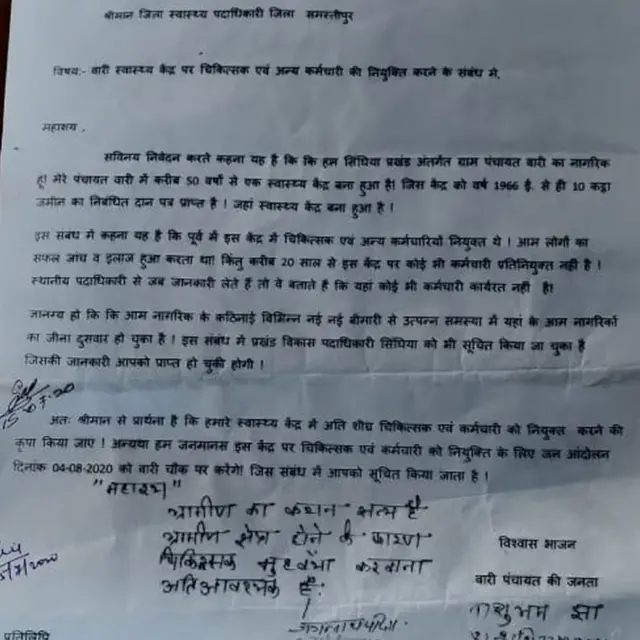 श्रीमान जिला स्वास्थ्य पदाधिकारी जिला समस्तीपुर
विषय:- वारी स्वास्थ्य केंद्र पर चिकित्सक एवं अन्य कर्मचारी की नियुक्ति करने के संबंध मे,
महाशय ,
सविनय निवेदन करते कहना यह है कि कि हम सिंघिया प्रखंड अंतर्गत ग्राम पंचायत वारी का नागरिक
हूं! मेरे पंचायत वारी में करीब 50 वर्षों से एक स्वास्थ्य केंद्र बना हुआ है! जिस केंद्र को वर्ष 1966 ई. से ही 10 कट्ठा
जमीन का निबंधित दान पत्र प्राप्त है ! जहां स्वास्थ्य केंद्र बना हुआ है !
इस संबंध मे कहना यह है कि पूर्व में इस केंद्र में चिकित्सक एवं अन्य कर्मचारियों नियुक्त थे ! आम लोगों का
सफल जांच व इलाज हुआ करता था! किंतु करीब 20 साल से इस केंद्र पर कोई भी कर्मचारी प्रतिनियुक्त नहीं है !
स्थानीय पदाधिकारी से जब जानकारी लेते हैं तो वे बताते है कि यहां कोई भी कर्मचारी कार्यरत नहीं है!
जानगय हो कि कि आम नागरिक के कठिनाई विभिन्न नई नई बीमारी से उत्पन्न समस्या में यहां के आम नागरिकों
का जीना दुसवार हो चुका है ! इस संबंध में प्रखंड विकास पदाधिकारी सिंघिया को भी सूचित किया जा चुका है
जिसकी जानकारी आपको प्राप्त हो चुकी होगी !
अतः श्रीमान से प्रार्थना है कि हमारे स्वास्थ्य केंद्र में अति शीघ्र चिकित्सक एवं कर्मचारी को नियुक्त करने की
कृपा किया जाए ! अन्यथा हम जनमानस इस केंद्र पर चिकित्सक एवं कर्मचारी को नियुक्ति के लिए जन आंदोलन
दिनांक 04-08-2020 को वारी चौक पर करेंगे! जिस संबंध में आपको सूचित किया जाता है !
"महाशय"
ग्रामीण का कथन सत्य है
ग्रामीण क्षेत्र होने के कारण
चिकित्सक मुहैया करवाना
अतिआवश्यक है:
विश्वास भाजन
वारी पंचायत की जनता
झा
प्रतिलिपि